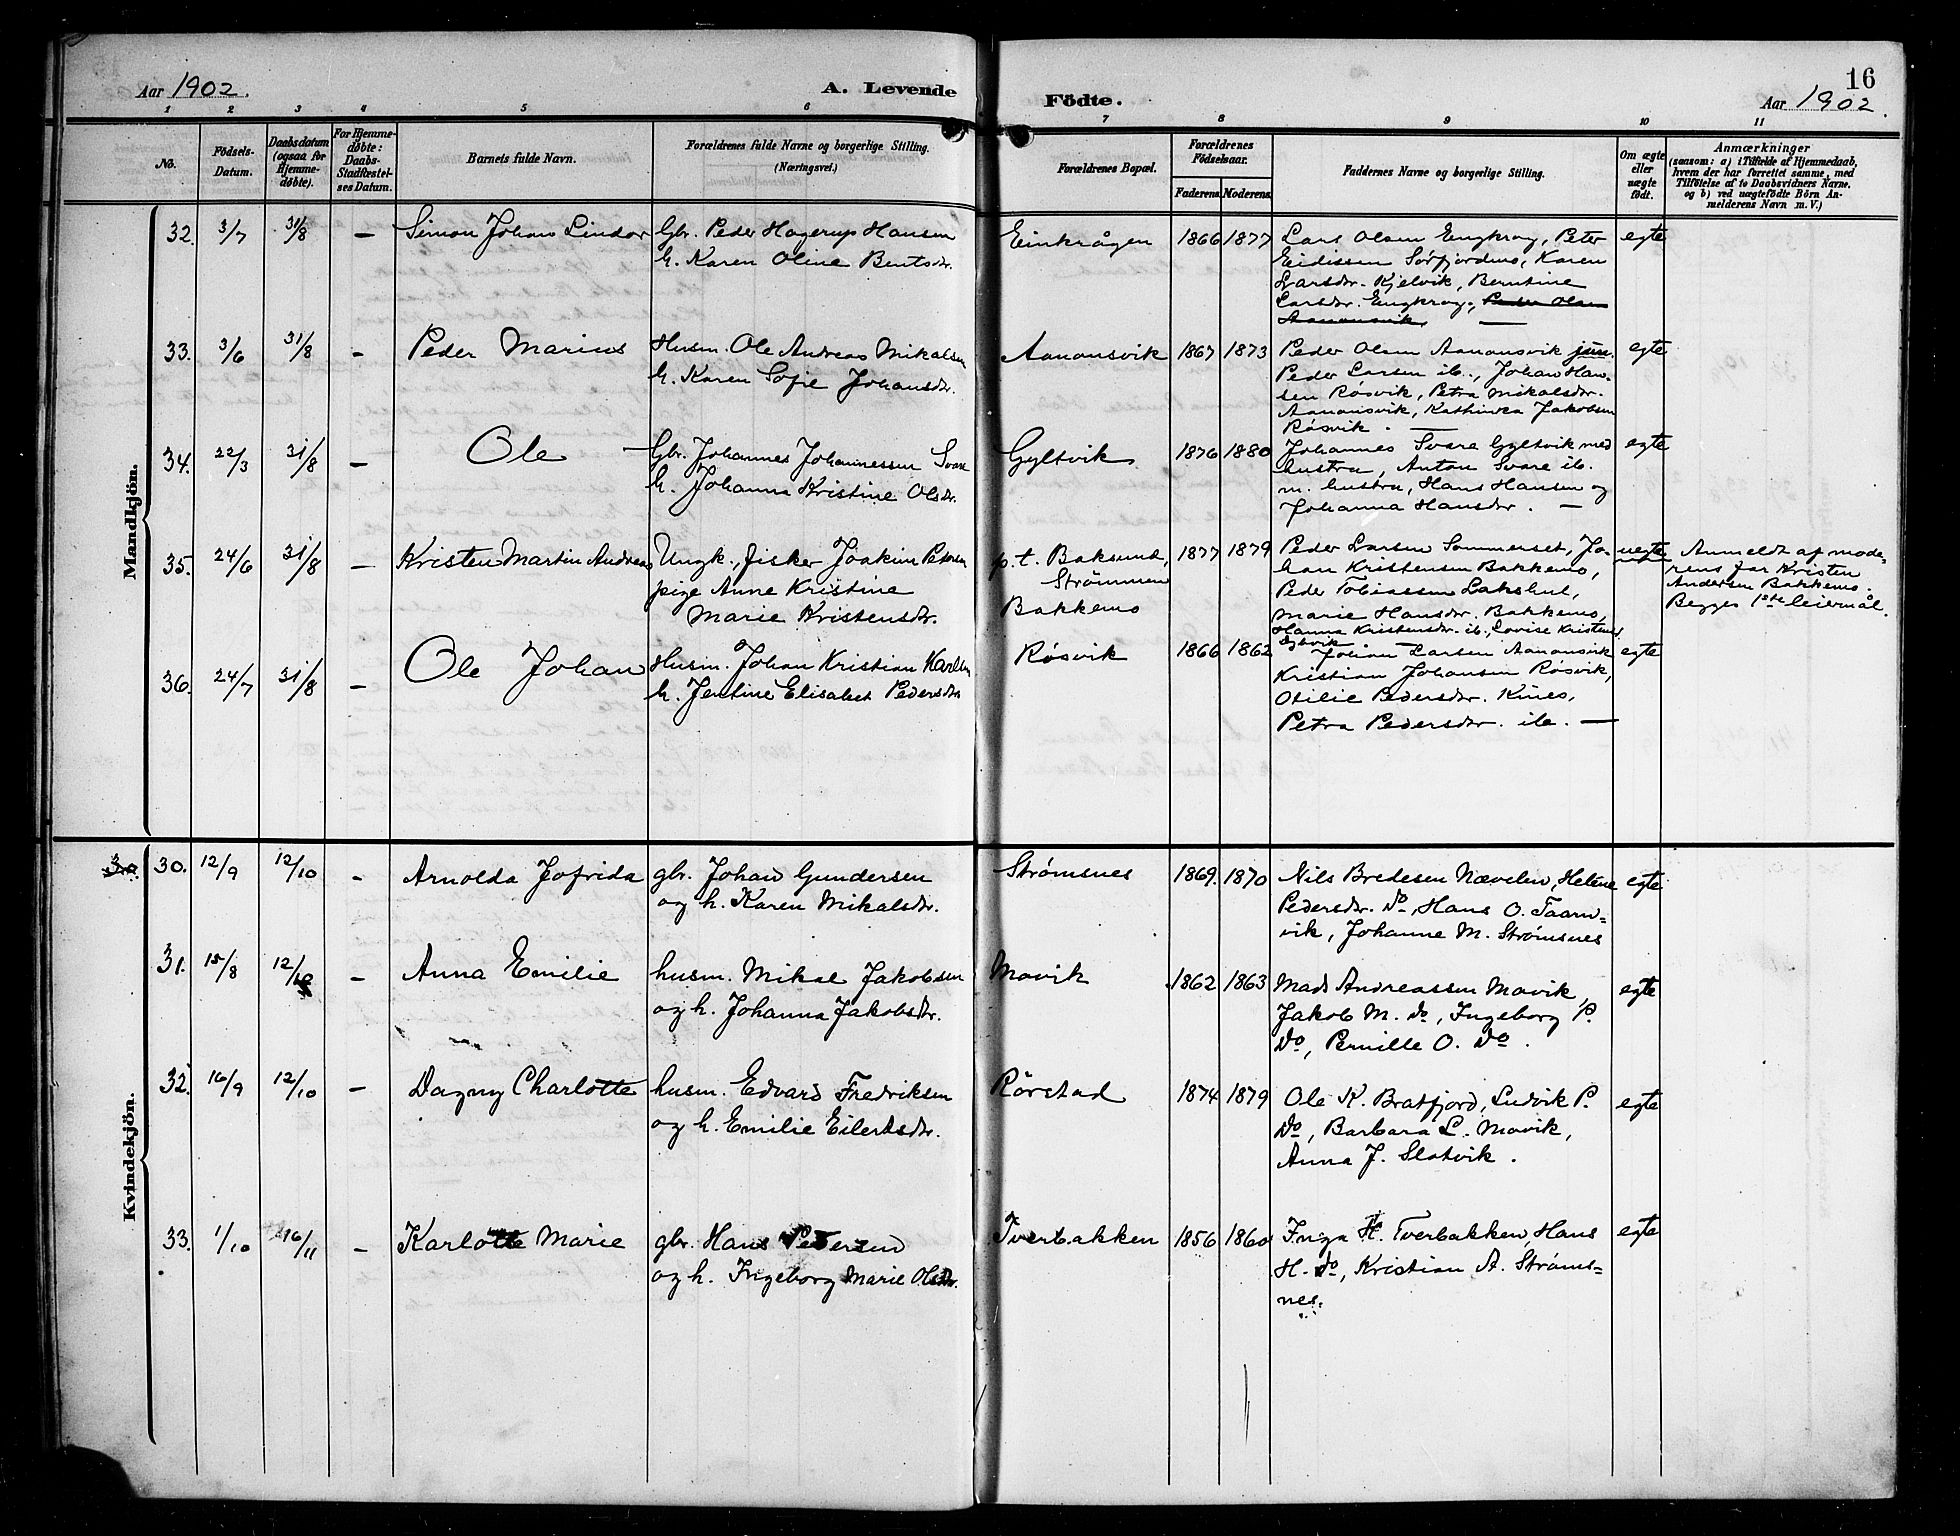 Aar 1902.
A. Levende
Födte.
16
Aar 1902
1 2 3 4 5 6 7 8 9 10 11
No.
Födsels-
Datum.
Daabsdatum
(ogsaa for
Hjemme-
döbte).
For Hjemme-
döbte:
Daabs-
Stadfæstel-
ses Datum.
Barnets fulde Navn.
Forældrenes fulde Navne og borgerlige Stilling.
(Næringsvei.)
Forældrenes Bopæl.
Forældrenes
Födselsaar.
Faderens
Moderens.
Faddernes Navne og borgerlige Stilling.
Om ægte
eller
uægte
födt.
Anmærkninger
(saasom: a) i Tilfælde af Hjemmedaab,
hvem der har forrettet samme, med
Tilföielse af to Daabsvidners Navne.
og b) ved uægtefödte Börn An-
melderens Navn m. V.)
Mandkjön.
32. 3/7 31/8 — Simon Johans Lindor
Gbr. Peder Hagerup Hansen
h. Karen Oline Bentsdr.
Einkrågen 1866 1877
Lars Olsen Engkrog, Peter
Eidissen Sørfjordmo, Karen
Larsdr. Kjelvik, Berntine
Larsdr. Engkrog, Peder Olsen
Aanonsvik —
egte
33. 3/6 31/8 - Peder Marius
Husm. Ole Andreas Mikalsen
h. Karen Sofie Johansdr.
Aanonsvik 1867 1873
Peder Olsen Aanonsvik jun.
Peder Larsen ib., Johan Han-
sen Røsvik, Petra Mikalsdr.
Aanonsvik, Kathinka Jakobsen
Røsvik. —
egte
34. 22/3 31/8 — Ole —
Gbr. Johannes Johannessen Svare
h. Johanna Kristine Olsdr.
Gyltvik 1876 1880
Johannes Svare Gyltvik med
hustru, Anton Svare ib.
m. hustru, Hans Hansen og
Johanna Hansdr. —
egte
35. 24/6 31/8 — Kristen Martin Andreas
Ungk., fisker Joakim Petersen
pige Anne Kristine
Marie Kristensdr.
p.t. Baksund,
Strömmen
Bakkemo
1877 1879
Peder Larsen Sommerset, Jo-
han Kristensen Bakkemo,
Peder Tobiassen Lakshul,
Marie Hansdr. Bakkemo,
Hanna Kristensdr. ib., Lovise Kristens.
uegte
Anmeldt af mode-
rens far Kristen
Andersen Bakkemo.
Begges 1ste leiermål.
36. 24/7 31/8 — Ole Johan
Husm. Johan Kristian Karlsen
h. Jentine Elisabet Pedersdr
Røsvik 1866 1862
Johan Larsen Aanonsvik
Kristian Johansen Røsvik,
Otilie Pedersdr. Kines,
Petra Pedersdr. ib. —
egte
Kvindekjön.
30 30. 12/9 12/10 - Arnolda Jofrida
gbr. Johan Gundersen
og h. Karen Mikalsdr.
Strømsnes 1869. 1870
Nils Bredesen Nævelen, Helene
Pedersdr. do, Hans O. Taarn-
vik, Johanne M. Strømsnes
egte
31. 15/8 12/10 - Anna Emilie
husm. Mikal Jakobsen
og h. Johanna Jakobsdr.
Movik 1862 1863
Mads Andreassen Movik,
Jakob M. do, Ingeborg P.
do, Pernille O. do.
egte
32. 16/9 12/10 - Dagny Charlotte
husm. Edvard Fredriksen
og h. Emilie Eilertsdr.
Rörstad 1874 1879
Ole K. Bratfjord, Ludvik P.
do, Barbara L. Movik,
Anna J. Slotvik.
egte
33. 1/10 16/11 - Karlotte Marie
gbr. Hans Pedersen
og h. Ingeborg Marie Olsdr.
Tverbakken 1856 1860
Inga H. Tverbakken, Hans
H. do, Kristian A. Strøms-
nes.
egte